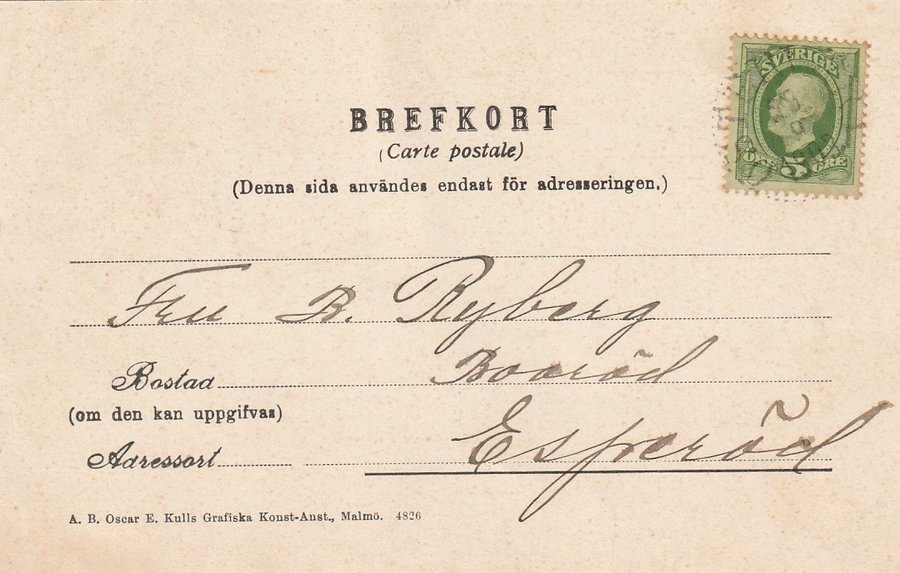 BREFKORT
(Carte postale)
(Denna sida användes endast för adresseringen.)
SVERIGE
ÖRE 5 ÖRE
Fru B. Ryberg
Bostad Booröd
(om den kan uppgifvas)
Adressort Esperöd
A. B. Oscar E. Kulls Grafiska Konst-Anst., Malmö. 4826